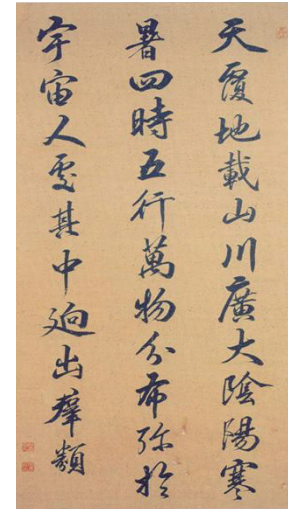 天覆地載山川廣大陰陽寒
暑四時五行萬物分布弥於
宇宙人處其中迥出羣類